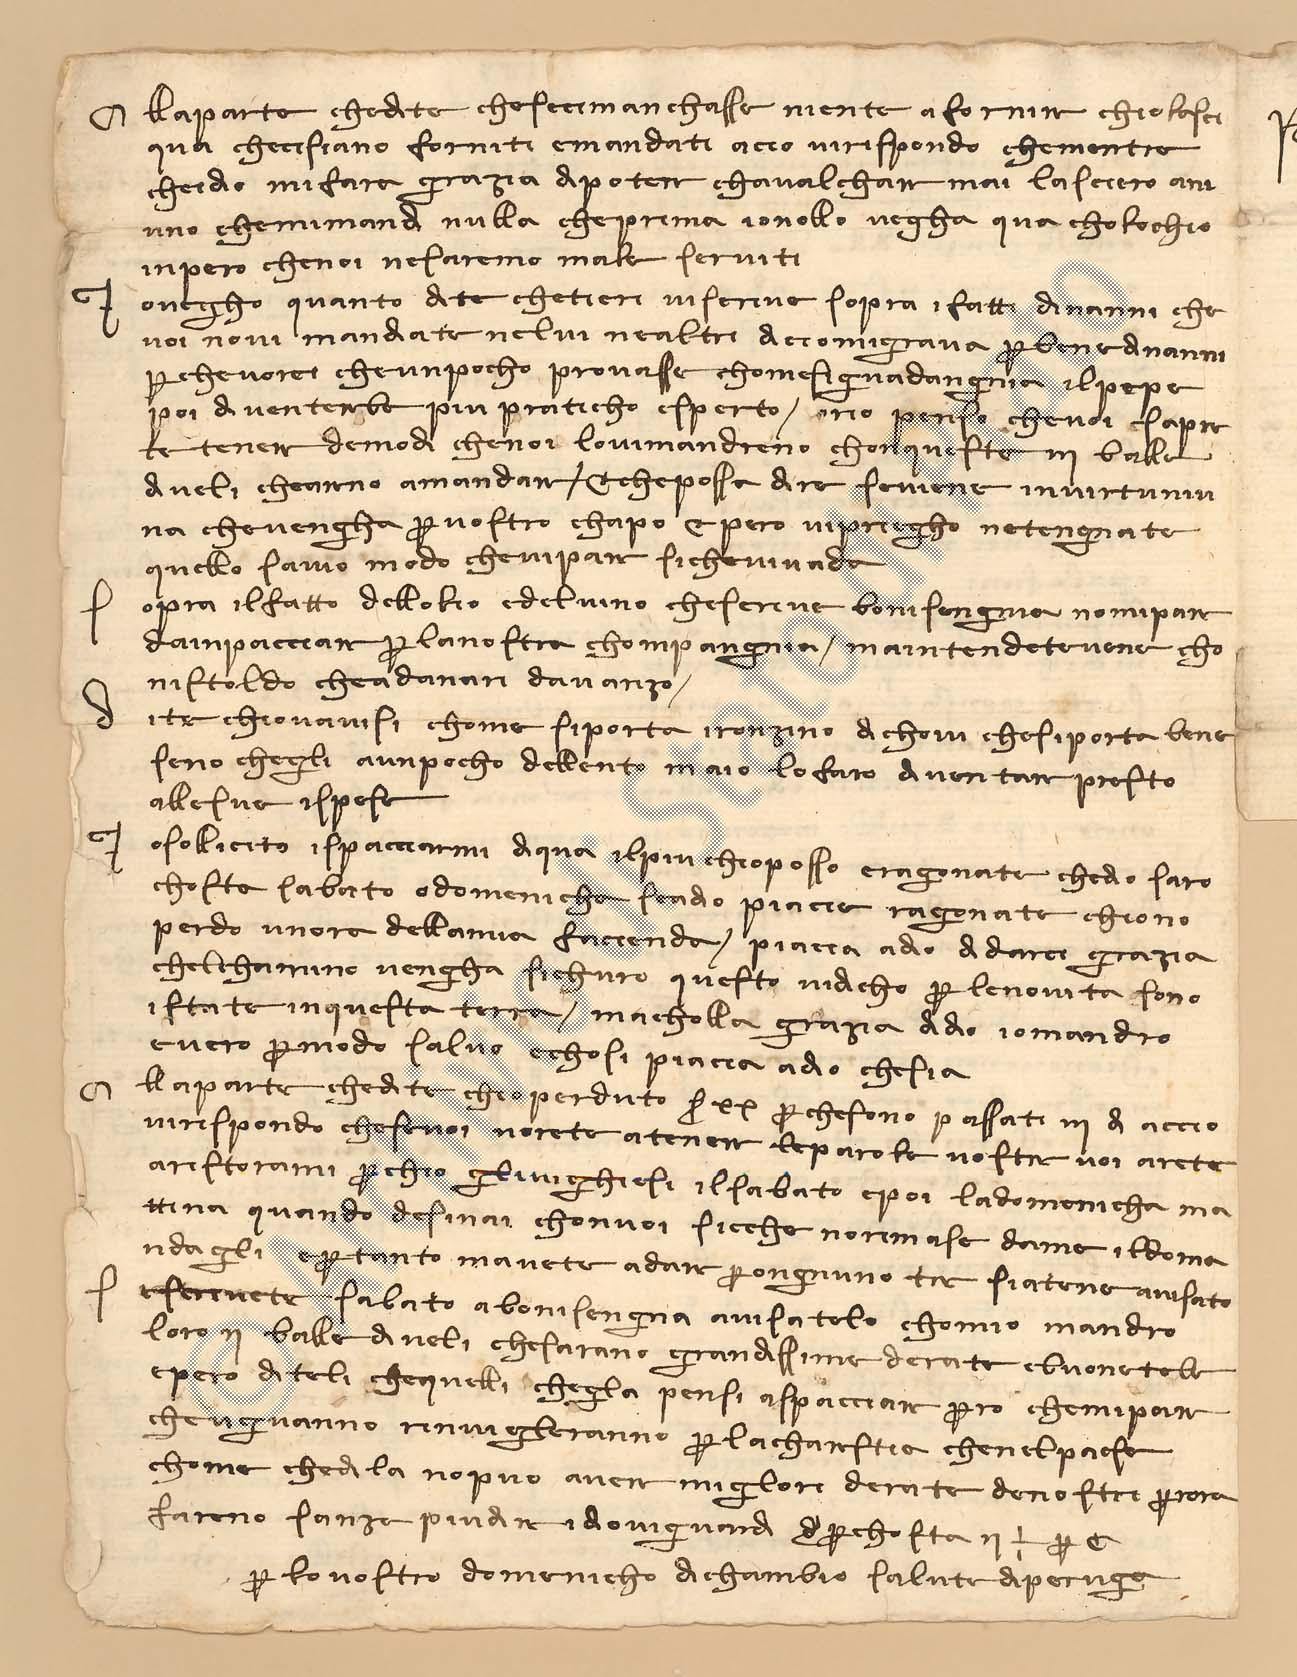 A llaparte chedite chesecimanchasse niente afornire chiolasci
qua checisiano forniti emandati accio virispondo chementre
cheidio mifara grazia dipoter chavalchar mai lascero avi
uno chemimandi nulla cheprima iononllo vegha qua chollochio
inpero chenoi nesaremo male serviti
I ovegho quanto dite chetieri viscrive sopra ifatti dinanni che
voi novi mandiate nelui nealtri diccomigrava p bene dinanni
p chevorei cheunpocho provasse chomesighuadangnia ilpepe
poi diventerebe piu praticho esperto / orio penso chevoi sapre
te tener demodi chenoi lovimandreno chonqueste iij balle
diveli cheanno amandar / echeposso dire seviene inuirtuniu
na chevengha p vostro chapo e pero viprieghe netengniate
quello savio modo chevipare sichevivada
S opra ilfatto dellolio edelvino chescrive bonisengnia nomipar
dainpacciar p lanostra chompangnia / maintendetevene cho
nistoldo cheadanari davanzo /
D ite chiovavisi chome siporta ironzino dichovi chesiporta bene
seno chegli aunpocho dellento maio lofaro diventar presto
allesue ispese
I osollicito ispacciarmi diqua ilpiu chioposso eragionate chedio saro
choste sabato odomenicha seadio piacie ragionate chiono
perdo unora dellamia faccienda / piaccia adio didarci grazia
chelchamino vengha sichuro questo vidicho p lenovita sono
istate inquesta terra / macholla grazia didio iomandro
evero p modo salvo echosi piaccia adio chesia
A llaparte chedite chioperduto s xx p chesono passati iij di accio
virispondo chesevoi vorete atener leparole vostre voi arete
aristorami p chio glivighiesi ilsabato epoi ladomenicha ma
ttina quando desinai chonvoi sicche norimase dame ildoma
ndagli ep tanto mavete adar p ongnuno tre siatene avisato
S escrivete sabato abonisengna avisatelo chomio mandro
loro ij balle diveli chesarano grandissime derate ebuonetele
epero ditteli chequelli chegla pensi aspacciar p ro chemipar
cheuguanno rinviglieranno p lacharestia chenelpaese
chome chedila nopuo aver migliori derate denostri p rora
fareno sanza piudire idiovighuardi p chosta ij p c
p lovostro domenicho dichambio salute diperugia